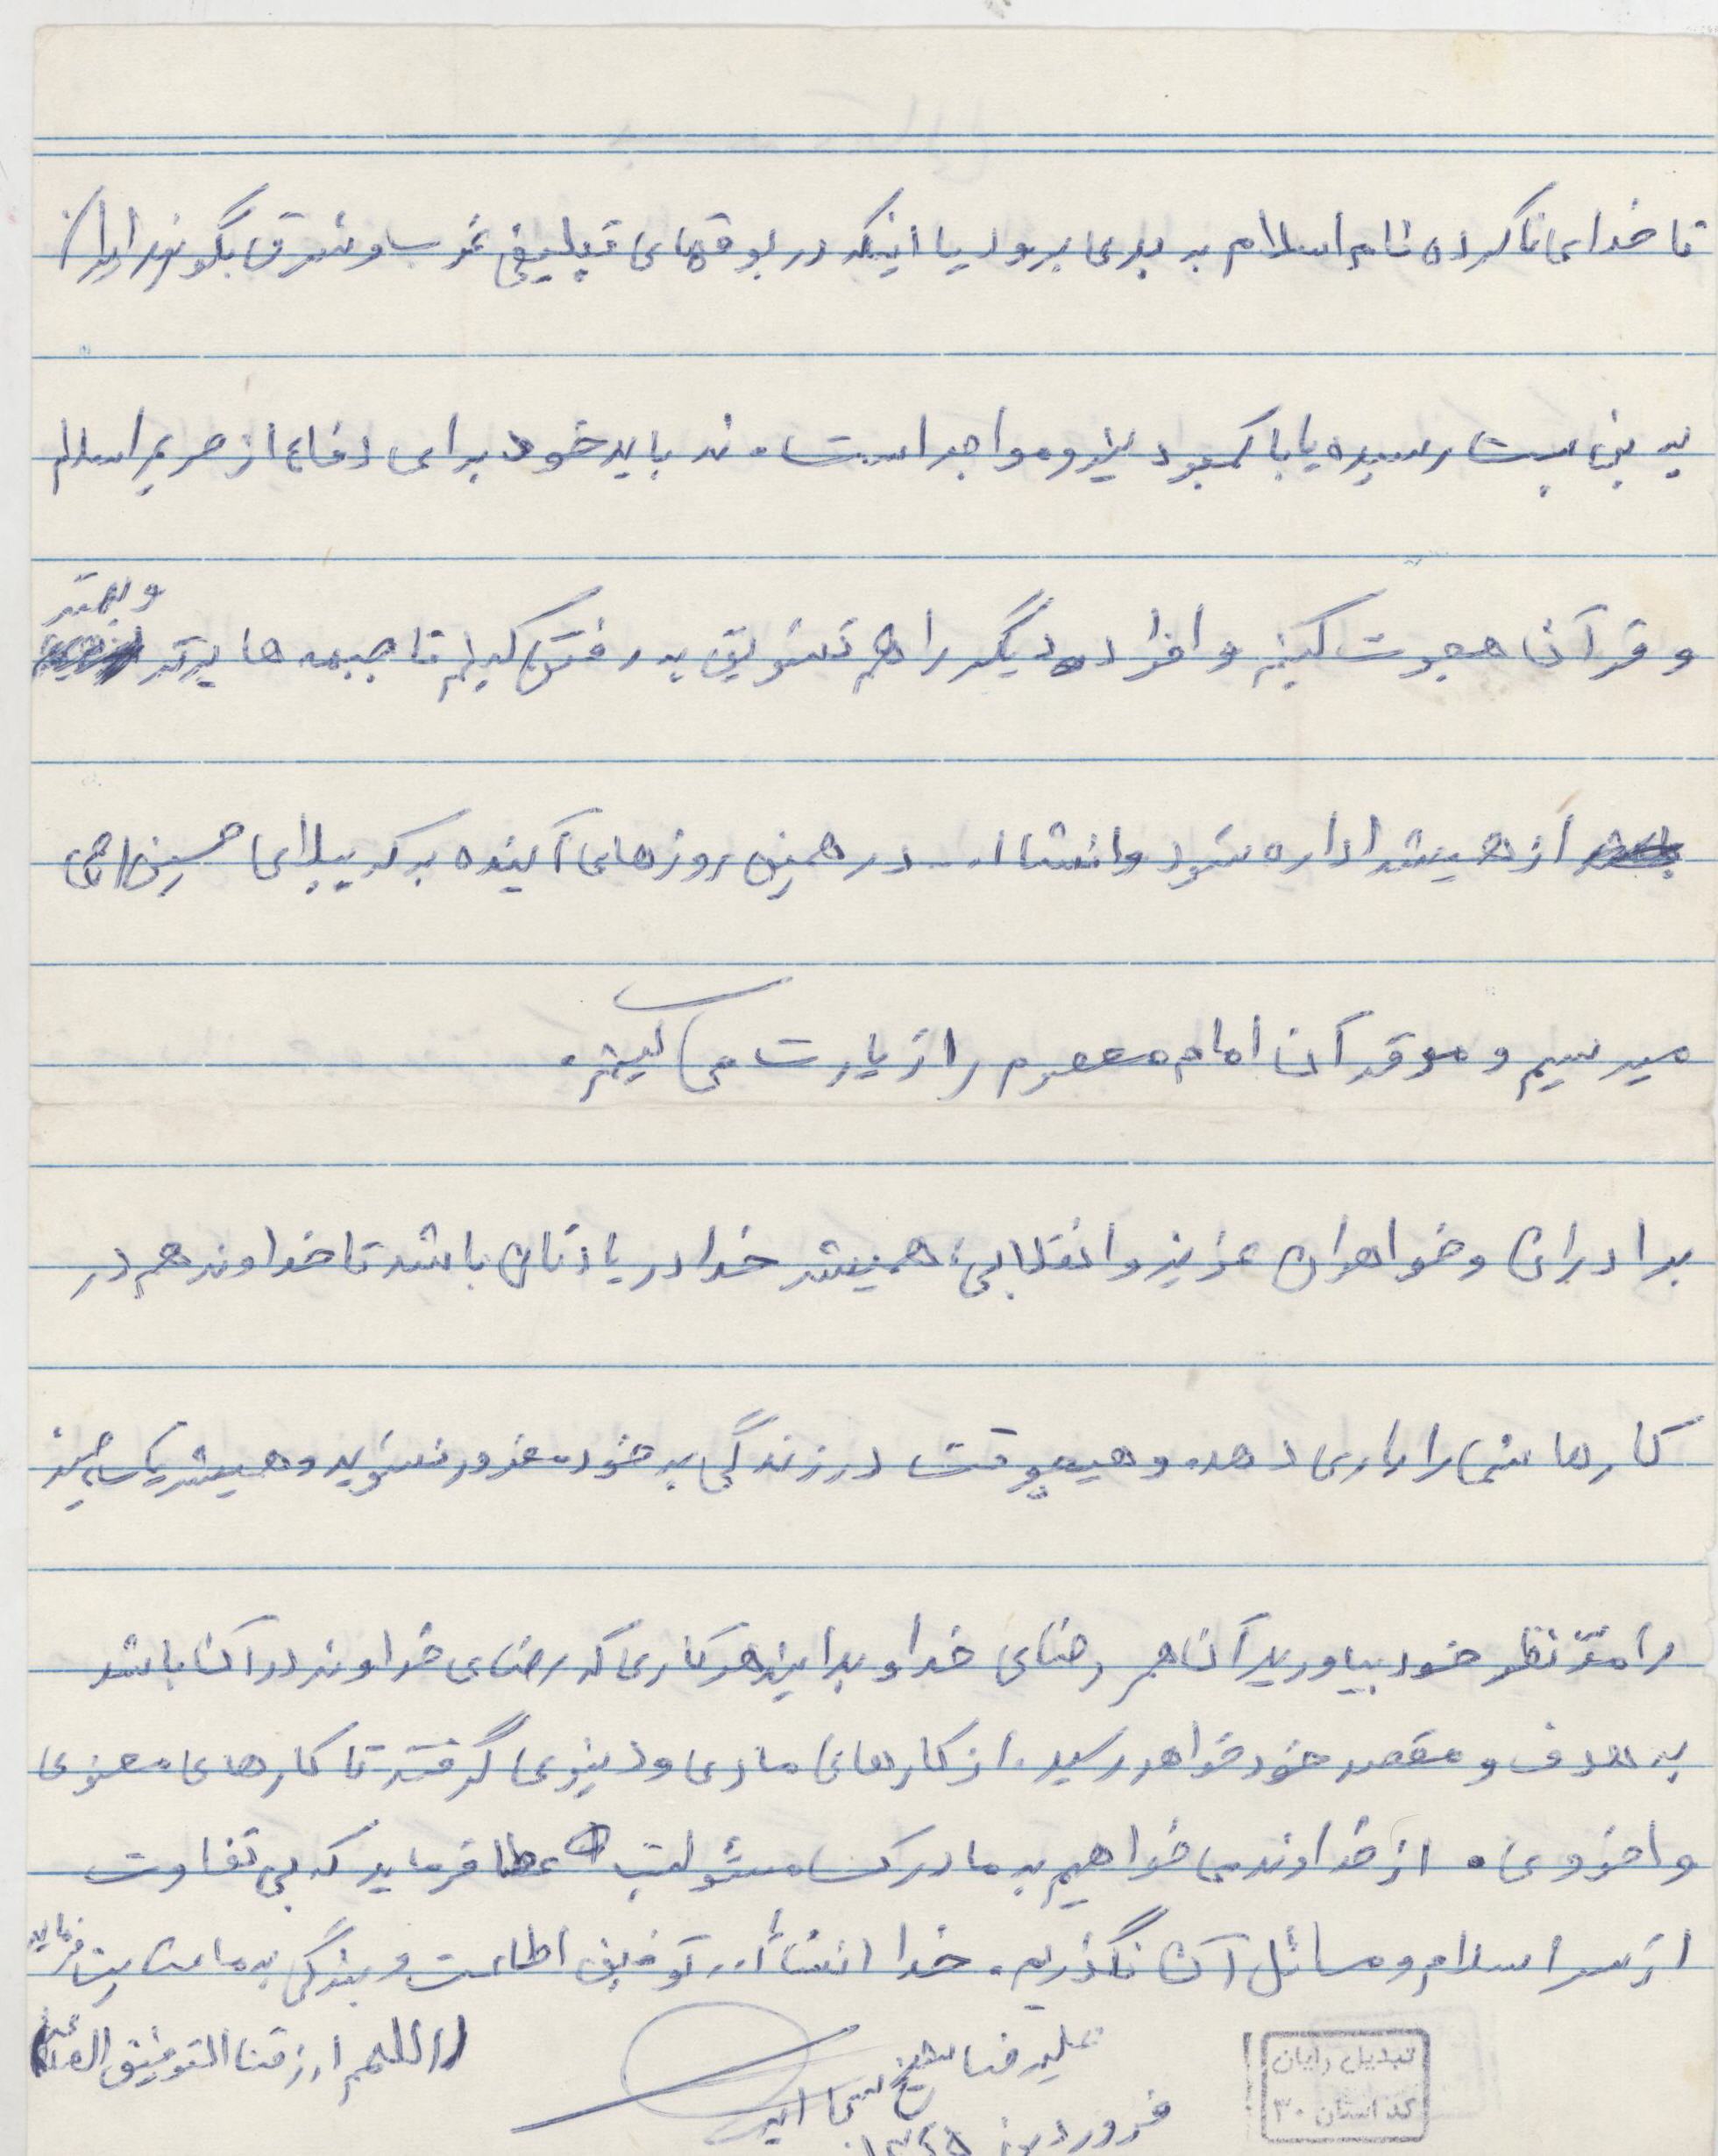 تا خدای ناکرده نام اسلام به بدی برود یا اینکه در بوقهای تبلیغی غرب و شرق بگویند ایران
به بن بست رسیده یا با کمبود نیرو مواجه است. نه باید خود برای دفاع از حریم اسلام
و قرآن هجرت کنیم و افراد دیگر را هم تشویق به رفتن کنیم تا جبهه ها پرتر و بهتر
از همیشه اداره شود و انشاا... در همین روزهای آینده به کربلای حسین (ع) می
میرسیم و مرقد آن امام معصوم را زیارت می کنیم.
برادران و خواهران عزیز و انقلابی، همیشه خدا در یادتان باشد تا خداوند هم در
کارها شما را یاری دهد. و هیچوقت در زندگی به خود مغرور نشوید و همیشه یک چیز
را مدّ نظر خود بیاورید آن هم رضای خدا و بدانید هر کاری که رضای خداوند در آن باشد
به هدف و مقصد خود خواهد رسید. از کارهای مادی و دنیوی گرفته تا کارهای معنوی
و اخروی. از خداوند می خواهیم به ما درک مسئولیت عطا فرماید که بی تفاوت
از سر اسلام و مسائل آن نگذریم. خدا انشاأ... توفیق اطاعت و بندگی به ما عنایت فرماید
((اللهم ارزقنا التوفیق الطاعة))
علیرضا
فروردین ۱۳۶۵
تبدیل رایان
کد استان ۳۰